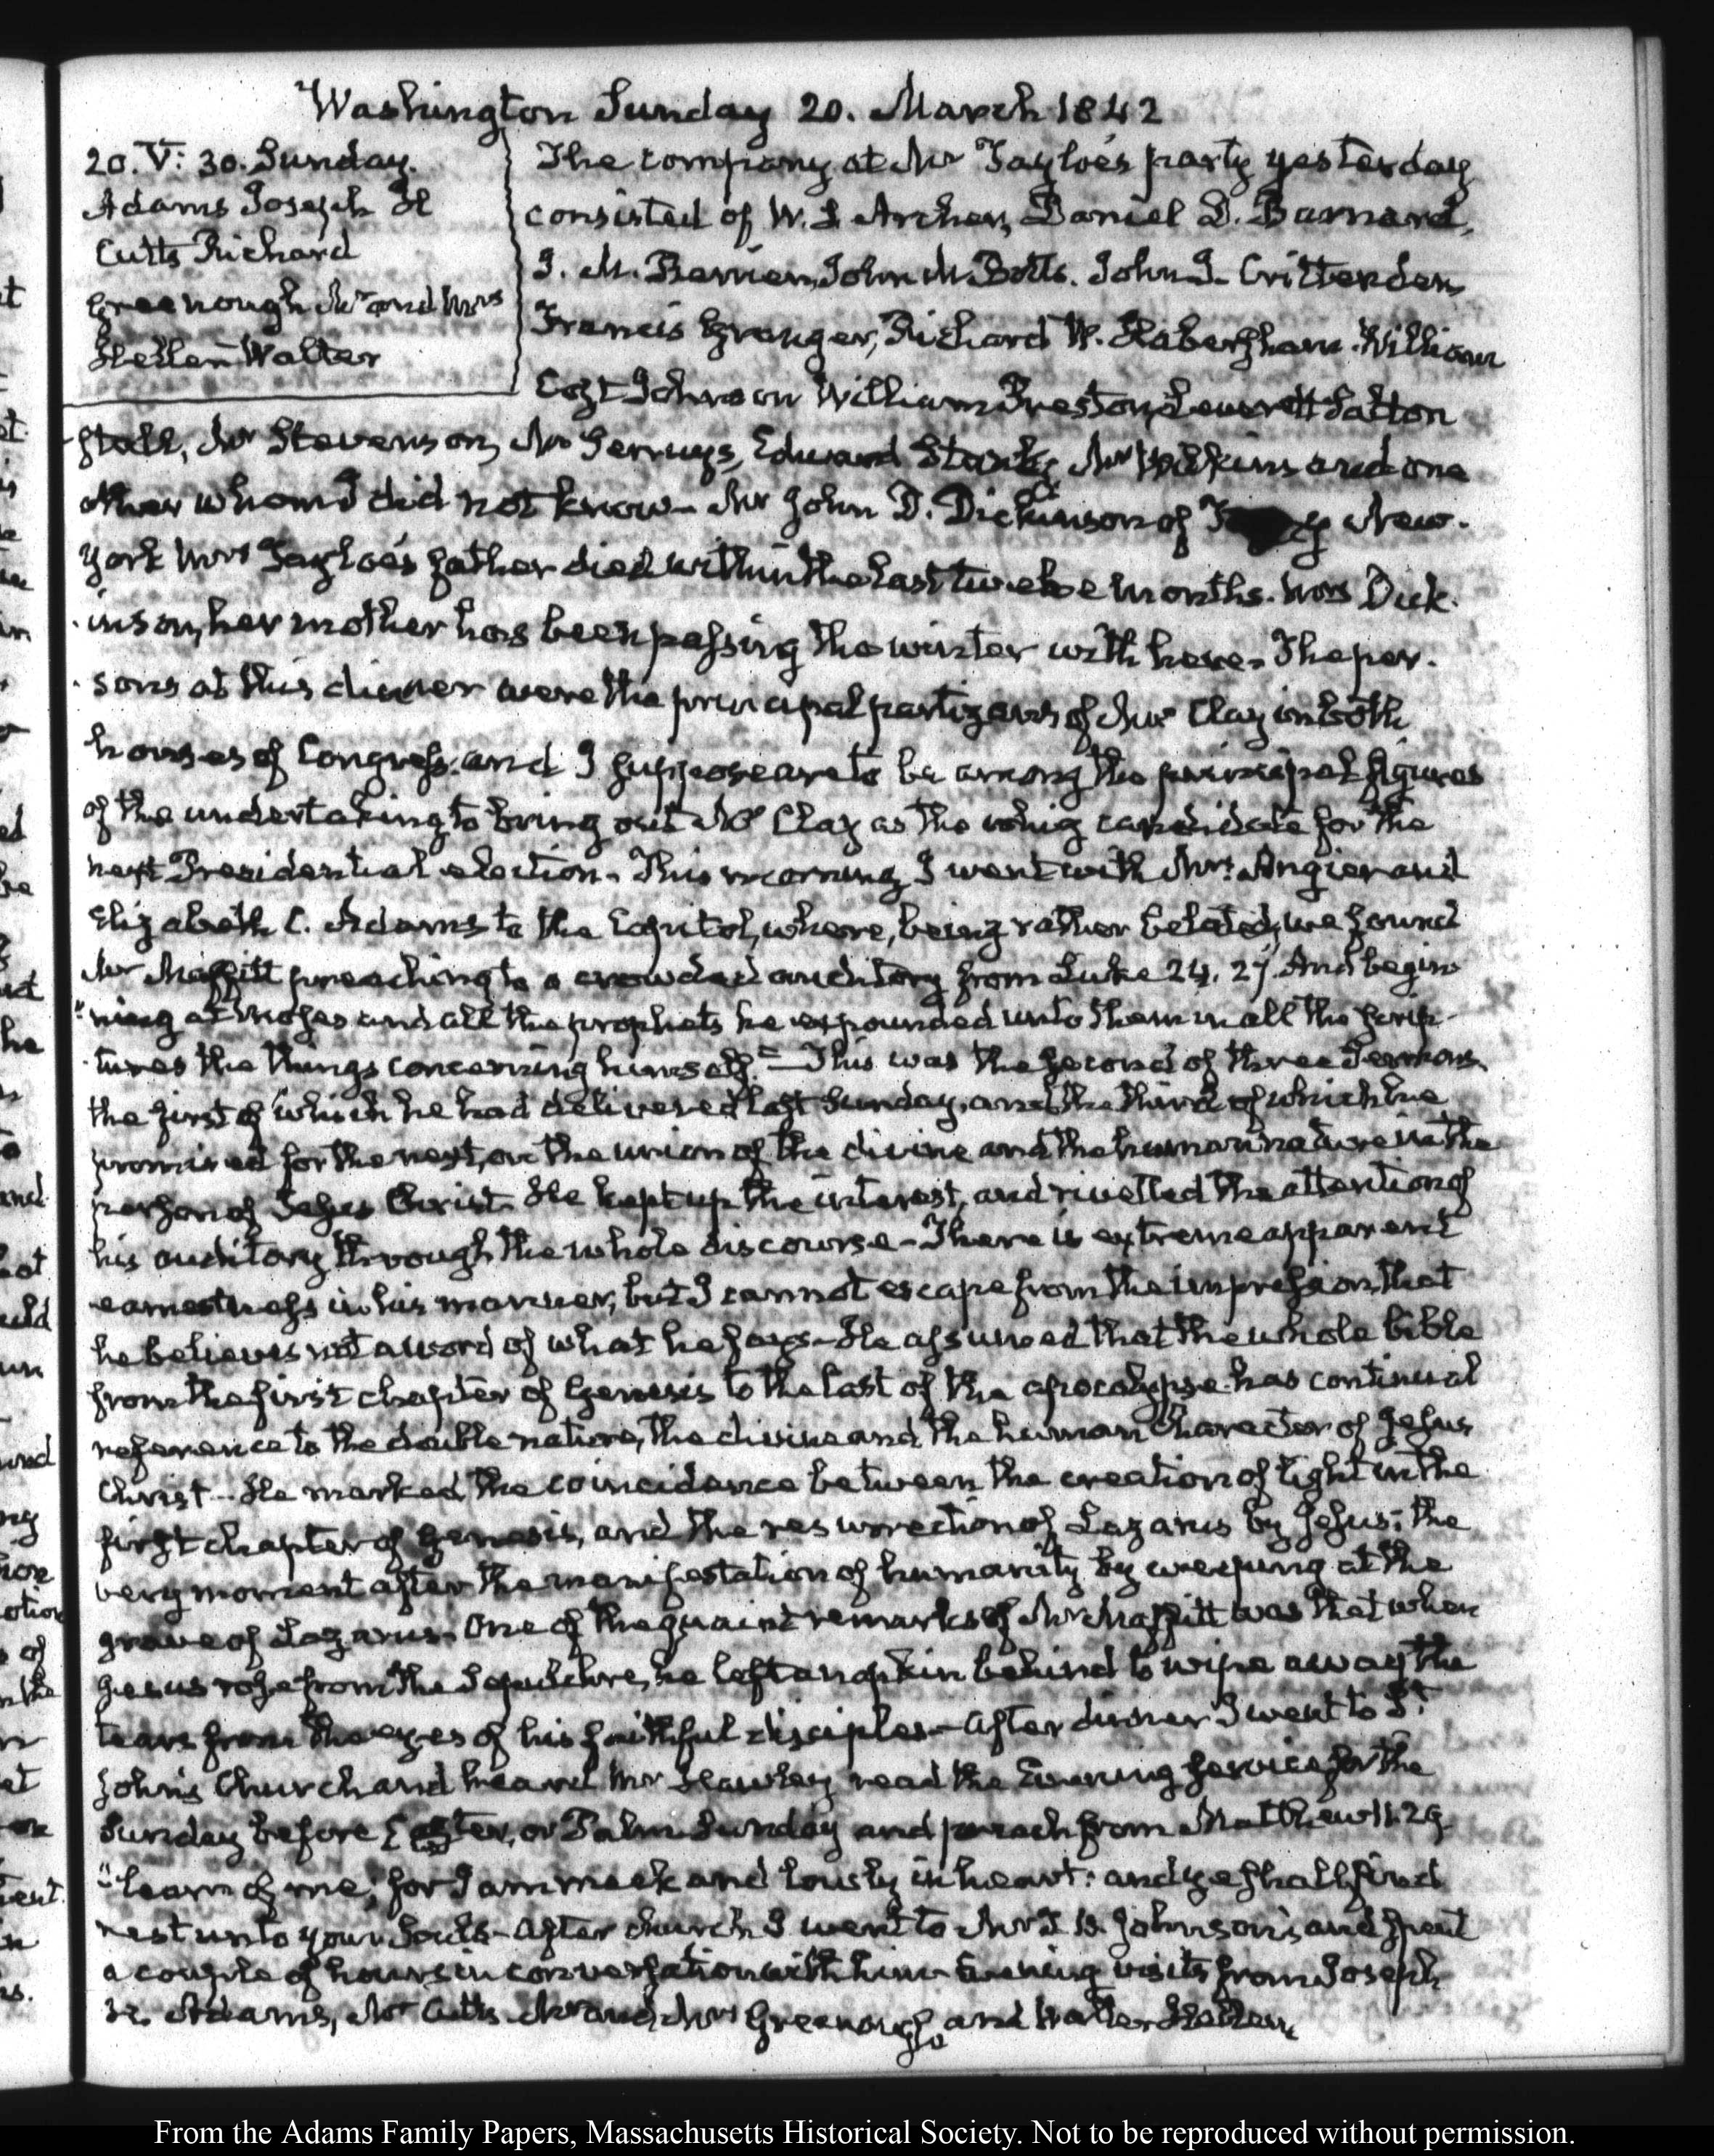 Washington Sunday 20. March 1842
20. V: 30. Sunday.
Adams Joseph H
Cutts Richard
Greenough Mr and Mrs
Hellen Walter
The company at Mr Tayloe's party yesterday
consisted of W. S Archer, Daniel D. Barnard,
J. M. Berrien, John M Botts. John J. Crittenden,
Francis Granger, Richard W. Habersham. William
Cost Johnson William Preston, Leverett Salton
-stall, Mr Stevenson, Mr Edward Stanly, Mr and one
other whom I did not know— Mr John D. Dickinson of Troy New-
York Mrs Tayloe's father died within the last twelve months. Mrs Dick-
-inson, her mother has been passing the winter with here. The per-
-sons at this dinner were the principal partizans of Mr Clay in both
houses of Congress, and I suppose are to be among the principal figures
of the undertaking to bring out Mr Clay as the whig candidate for the
next Presidential election. This morning I went with Mrs. Angier and
Elizabeth C. Adams to the Capitol, where, being rather belated, we found
Mr Maffitt preaching to a crowded auditory from Luke 24. 27. And begin
"ning at Moses and all the prophets he expounded unto them in all the scrip-
-tures the things concerning himself."— This was the second of three Sermons
the first of which he had delivered last Sunday, and the third of which he
promised for the next, on the union of the divine and the human nature in the
person of Jesus Christ. He kept up the interest, and rivetted the attention of
his auditory through the whole discourse— There is extreme apparent
earnestness in his manner, but I cannot escape from the impression that
he believes not a word of what he says— He assumed that the whole bible
from the first chapter of Genesis to the last of the apocalypse has continual
reference to the double nature, the divine and the human character of Jesus
Christ— He marked the coincidence between the creation of light in the
first chapter of Genesis, and the resurrection of Lazarus by Jesus; the
very moment after the manifestation of humanity by weeping at the
grave of Lazarus. One of the quaint remarks of Mr Maffitt was that when
Jesus rose from the Sepulchre, he left a napkin behind to wipe away the
tears from the eyes of his faithful disciples— After dinner I went to St.
John's Church and heard Mr Hawley read the Evening service for the
Sunday before Easter, or Palm Sunday and preach from Matthew 11. 29
"learn of me; for I am meek and lowly in heart: and ye shall find
rest unto your Souls— After church I went to Mr Johnson's and spent
a couple of hours in conversation with him— Evening visits from Joseph
H. Adams, Mr Cutts Mr and Mrs Greenough and Walter Hellen,
From the Adams Family Papers, Massachusetts Historical Society. Not to be reproduced without permission.